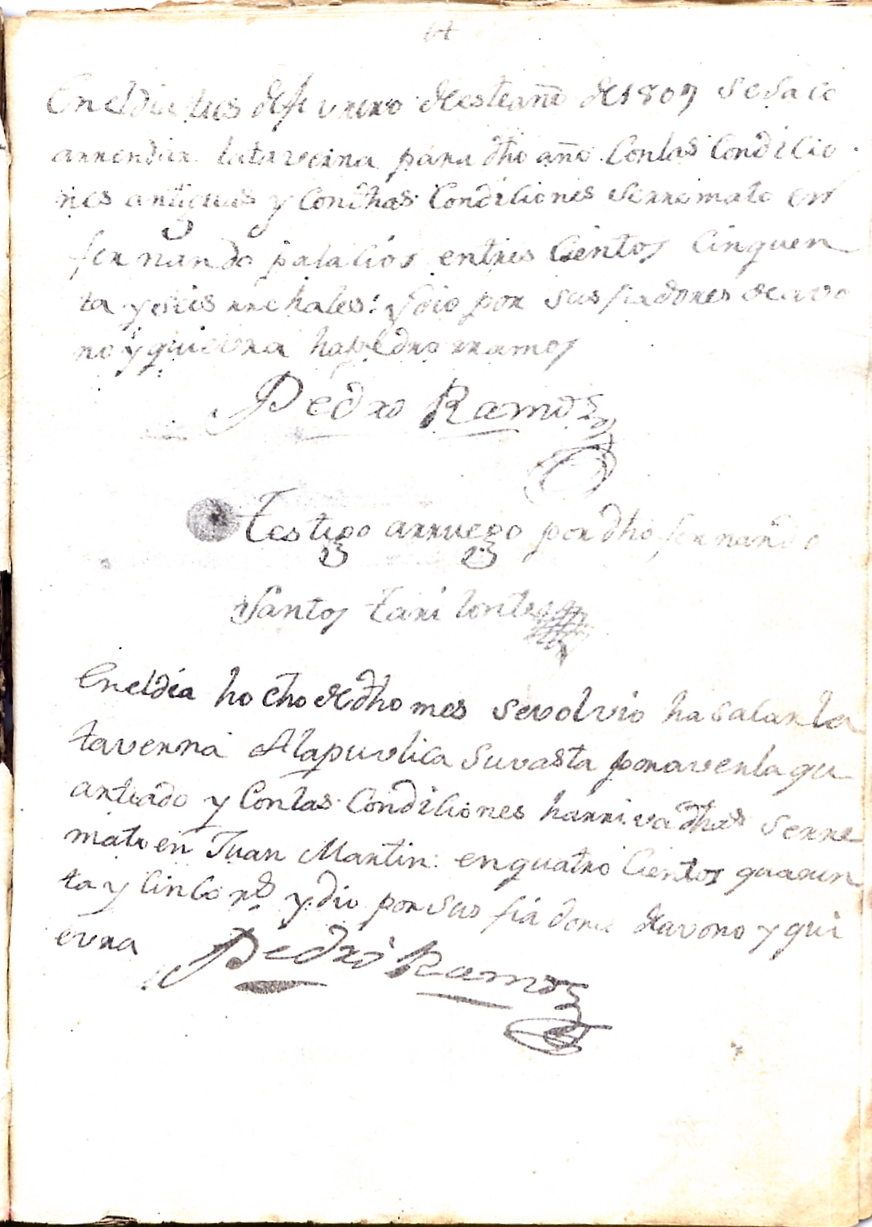 En el dia tres de febrero de este año de 1809 se saco
arrendar la taverna para dho año Con las Condicio
nes antiguas y Con dhas Condiciones se rremato en
fernando palacios en tres Cientos Cinquen
ta y seis rrehales: y dio por sus fiadores de avo
no y quievra ha pedro rramos
Pedro Ramos
Testigo arruego por dho fernando
Santos
En el dia hocho de dho mes se volvio ha sacar la
taverna A la puvlica suvasta por aver la qu
arteado y Con las Condiciones harriva dhas se rre
mato en Juan Martin: en quatro Cientos quaren
ta y Cinco rs y dio por sus fiadores de avono y qui
evra
Pedro Ramos